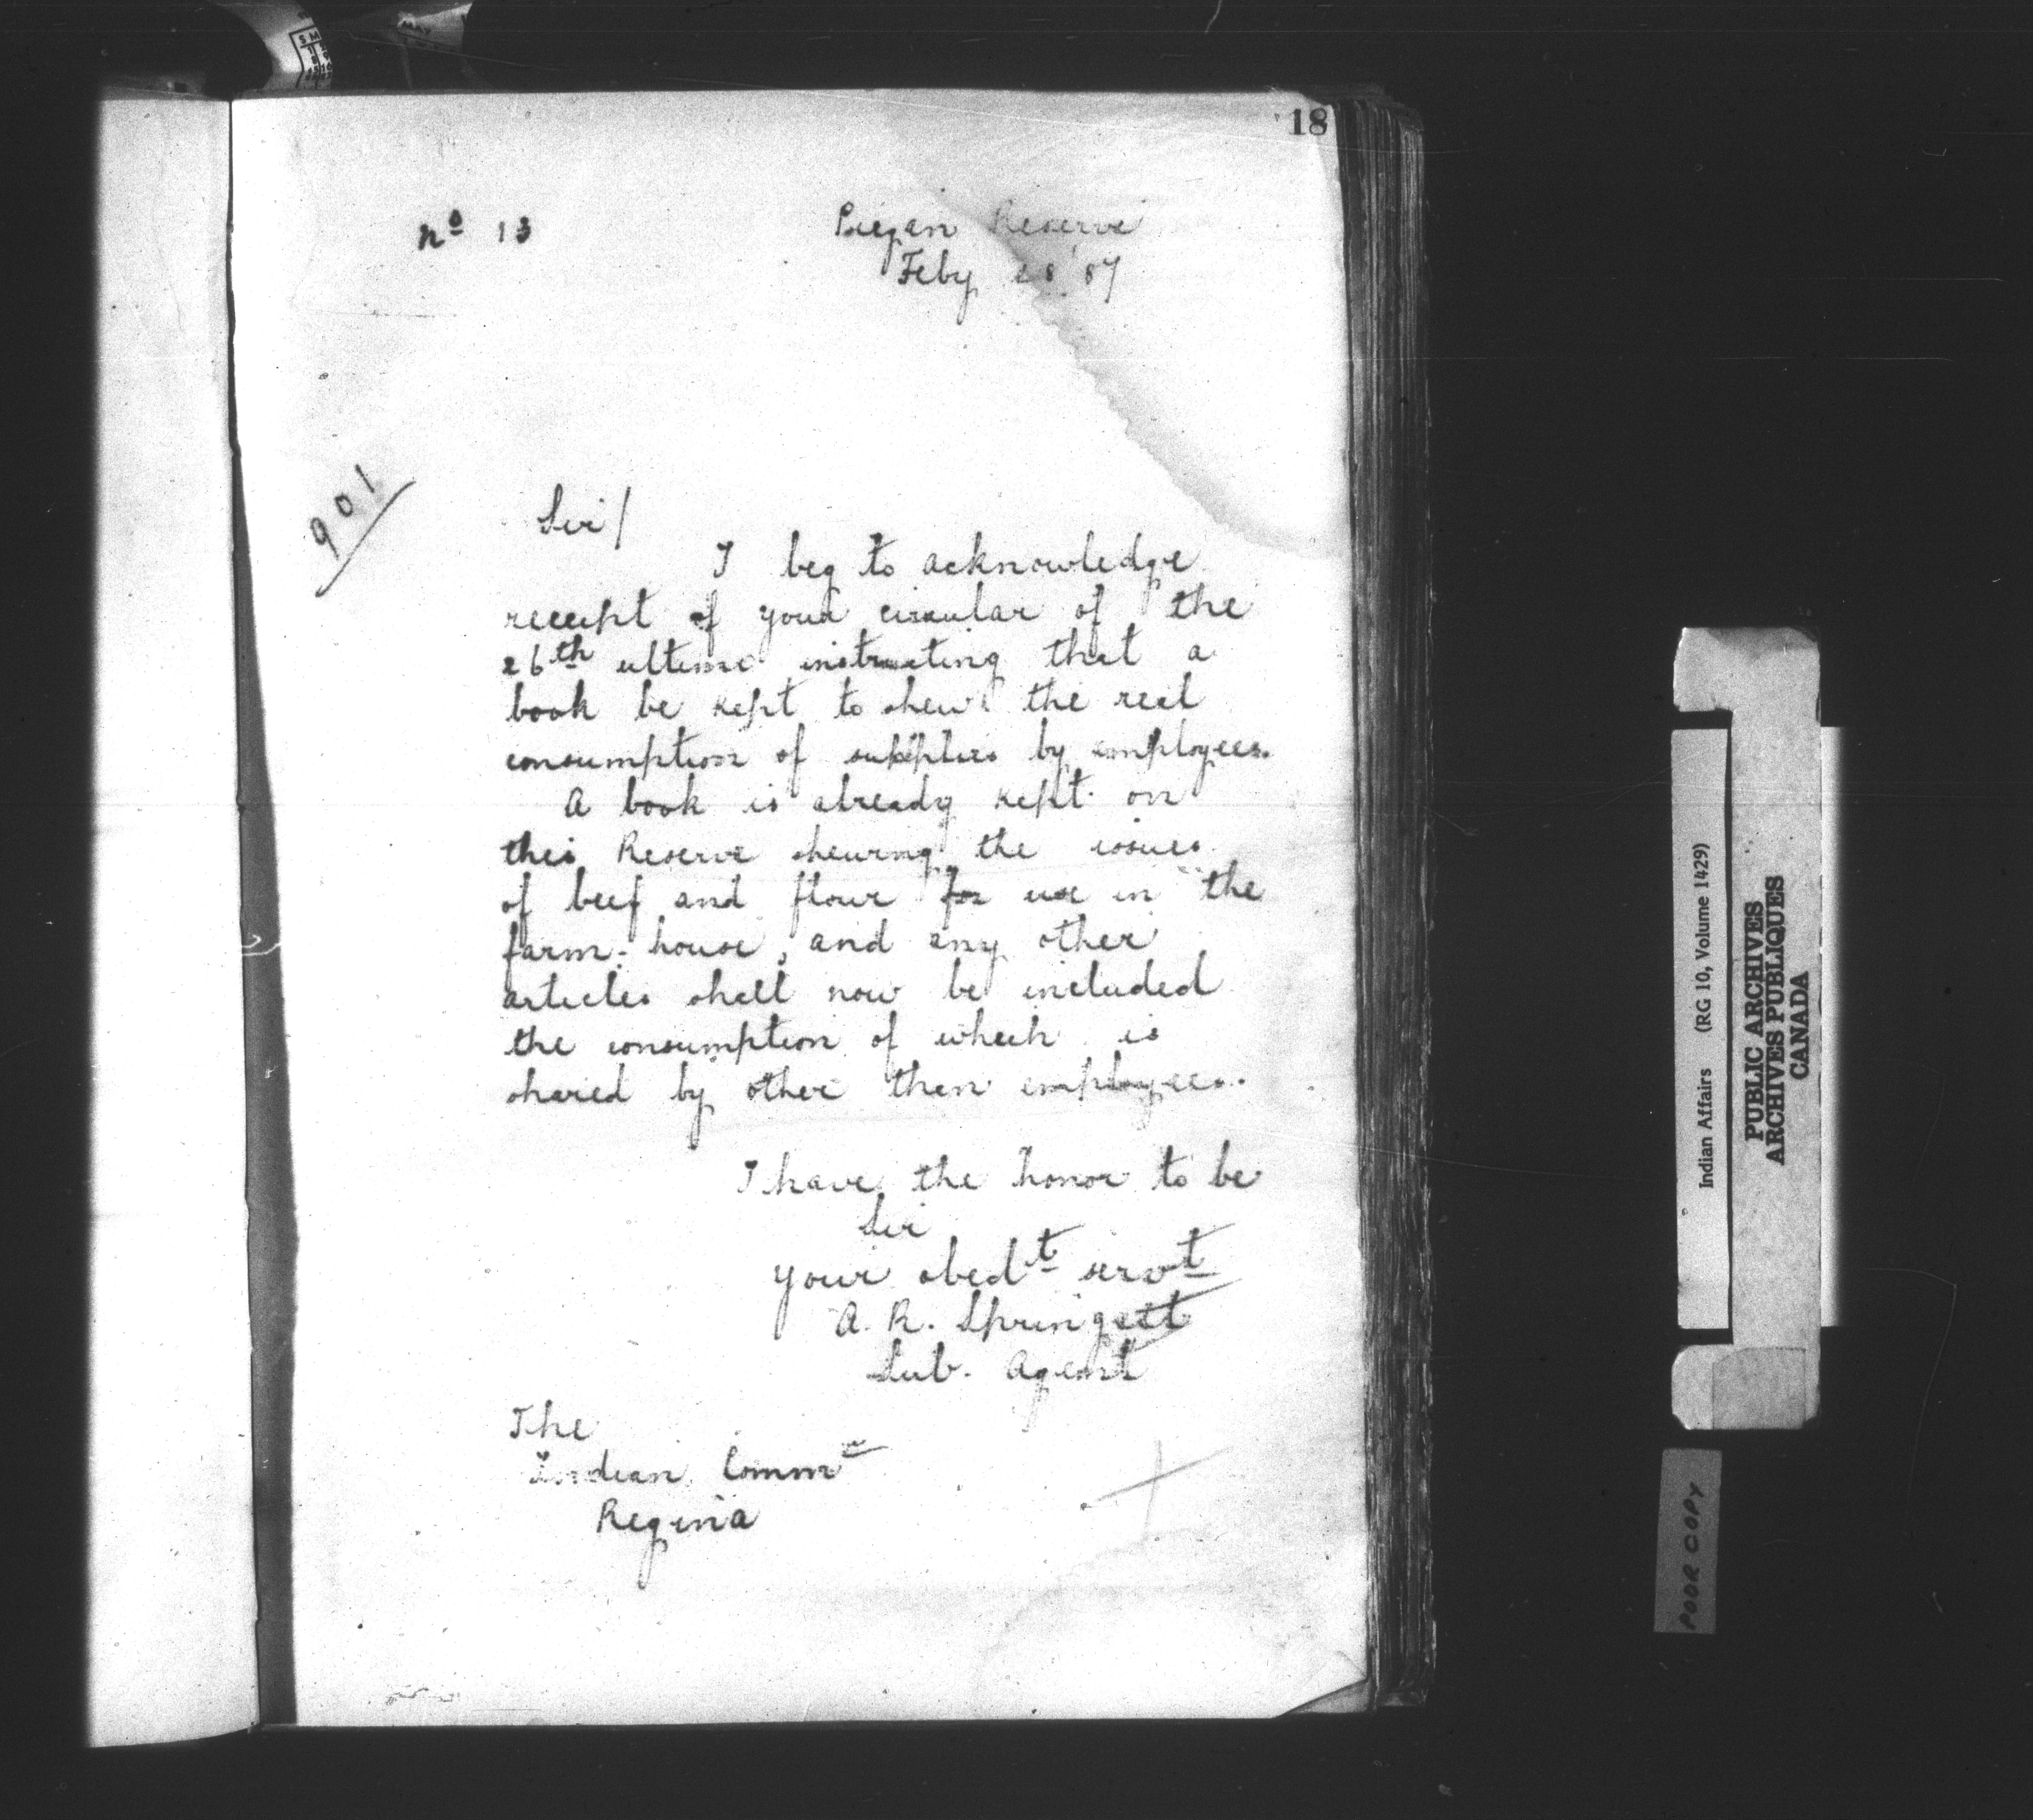 18
No 13
Piegan Reserve
Feby 28 '87
901
Sir/
I beg to acknowledge
receipt of your circular of the
26th ultimo instructing that a
book be kept to shew the real
consumption of supplies by employees.
A book is already kept on
this Reserve shewing the issues
of beef and flour for use in the
farm-house, and any other
articles shall now be included
the consumption of which is
shared by other than employees.
I have the honor to be
Sir
your obedt servt
A. R. Springett
Sub. Agent
The
Indian Commr
Regina
Indian Affairs (RG 10, Volume 1429)
PUBLIC ARCHIVES
ARCHIVES PUBLIQUES
CANADA
POOR COPY